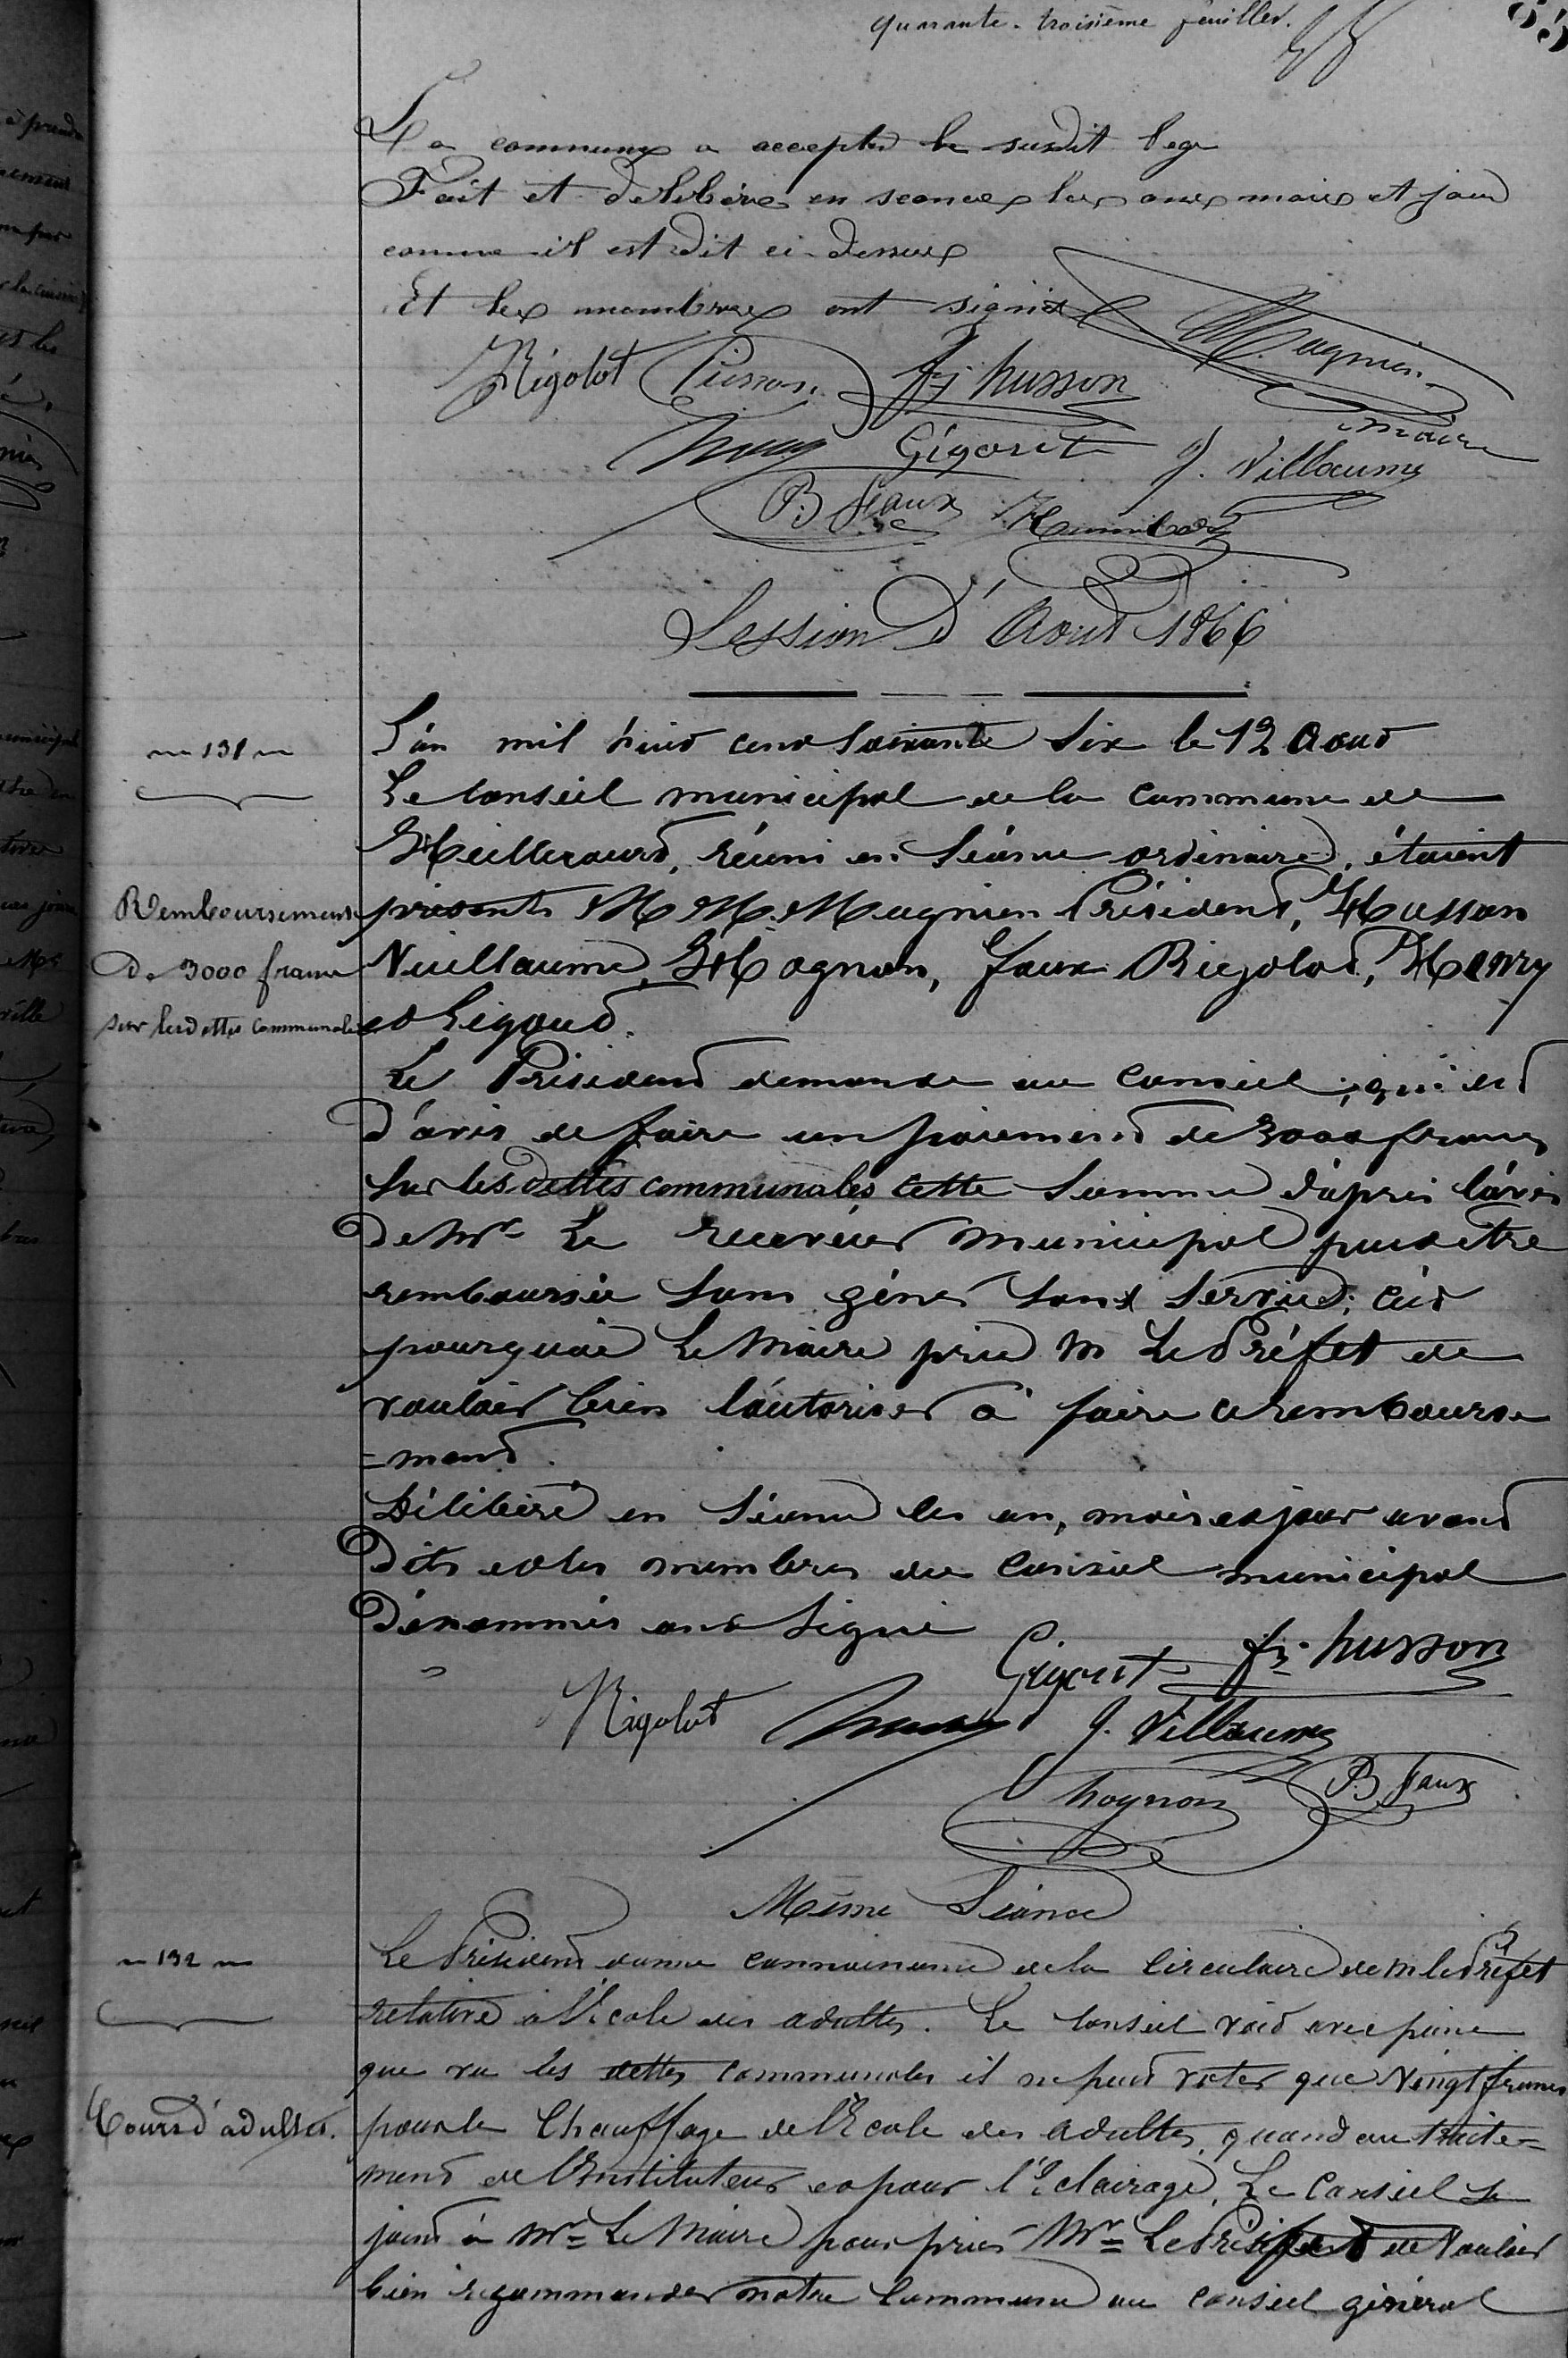 quarante-troisième feuillet.
La commune a accepter le susdit legs
Fait et délibéré en séance les ans mois et jour
comme il est dit ci-dessus
Et les membres ont signé
Magnien
maire
Rigolot Pierson fs husson
Henry Gigout J. Villaume
B Faux Humbert
Session d'Aout 1866
131
L'an mil huit cent soixante six le 12 Aout
Le Conseil municipal de la commune de
Heillecourt, réuni en séance ordinaire, étaient
présents MM. Magnien Président, Husson
Vuillaume, Hognon, Faux Rigolot, Henry
et Gigout.
Remboursement
de 3000 francs
sur les dettes communales
Le Président demande au conseil, qui est
d'avis de faire un paiement de 3000 francs
sur les dettes communales cette somme d'après l'avis
de Mr Le receveur municipal peut être
remboursée sans gêner son service; c'est
pourquoi Le Maire prie M Le Préfet de
vouloir bien l'autoriser à faire ce rembourse
=ment.
Délibéré en séance les an, mois et jour avant
dits et les membres du Conseil municipal
dénommés ont signé
Gigout fs husson
Rigolot Henry J. Villaume
hognon B Faux
Même Séance
132
Le Président donne connaissance de la Circulaire de M le Préfet
relative à l'école des adultes. Le Conseil voit avec peine
que vu les dettes communales il ne peut voter que vingt francs
Cours d'adultes.
pour le Chauffage de l'Ecole des adultes, quand au traite=
ment de l'Instituteur et pour l'Eclairage, Le Conseil se
joint à Mr Le Maire pour prier Mr Le Préfet de Vouloir
bien recommander notre Commune au conseil général